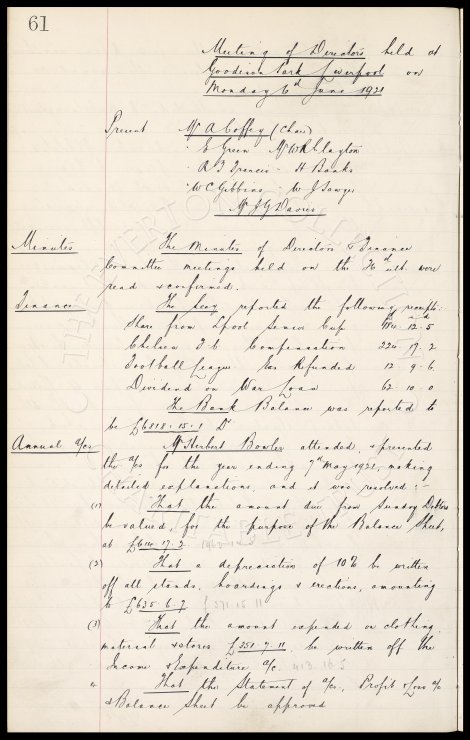 61
Meeting of Directors held at
Goodison Park Liverpool on
Monday 6th June 1921
Present Mr A Coffey (Chair)
" E Green Mr W R Clayton
" A T Francis " H Banks
" W C Gibbins " W J Sawyer
Mr J G Davies
Minutes The Minutes of Directors & Finance
Committee meetings held on the ult were
read & confirmed.
Finance The Secy reported the following receipts:
£ s d
Share from Lpool Senior Cup 484 12 5
Chelsea F C Compensation 224 17 2
Football League Exs Refunded 12 9 6
Dividend on War Loan 62 10 0
The Bank Balance was reported to
be £6818.15.1 Dr
Annual a/cs Mr Herbert Bowler attended, & presented
the a/cs for the year ending 7th May 1921, making
detailed explanations, and it was resolved:-
(1) That the amount due from Sundry Debtors
be valued, for the purpose of the Balance Sheet,
at £614.17.2
(2) That a depreciation of 10% be written
off all stands, hoardings & erections, amounting
to £635.6.7 £571.15.11
(3) That the amount expended on clothing,
material & stores £351.7.11, be written off the
Income & Expenditure a/c. 413.16.5
" That the Statement of a/cs, Profit & Loss a/c
& Balance Sheet be approved